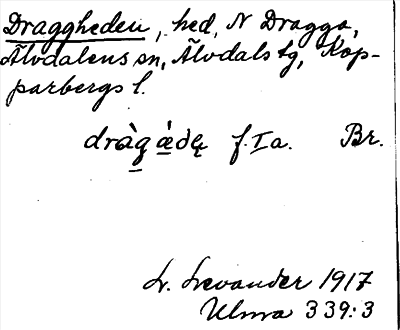 Draggheden, hed, N Dragga,
Älvdalens sn, Älvdals tg, Kop-
parbergs l.
dràg ǽdę f. Ia. Br.
L. Levander 1917
Ulma 339:3